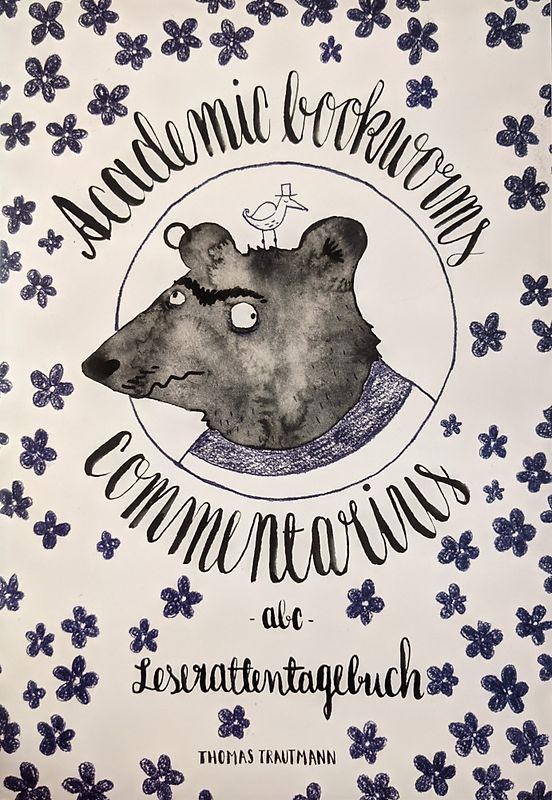 Academic bookworms
commentarius
- abc -
Leserattentagebuch
THOMAS TRAUTMANN